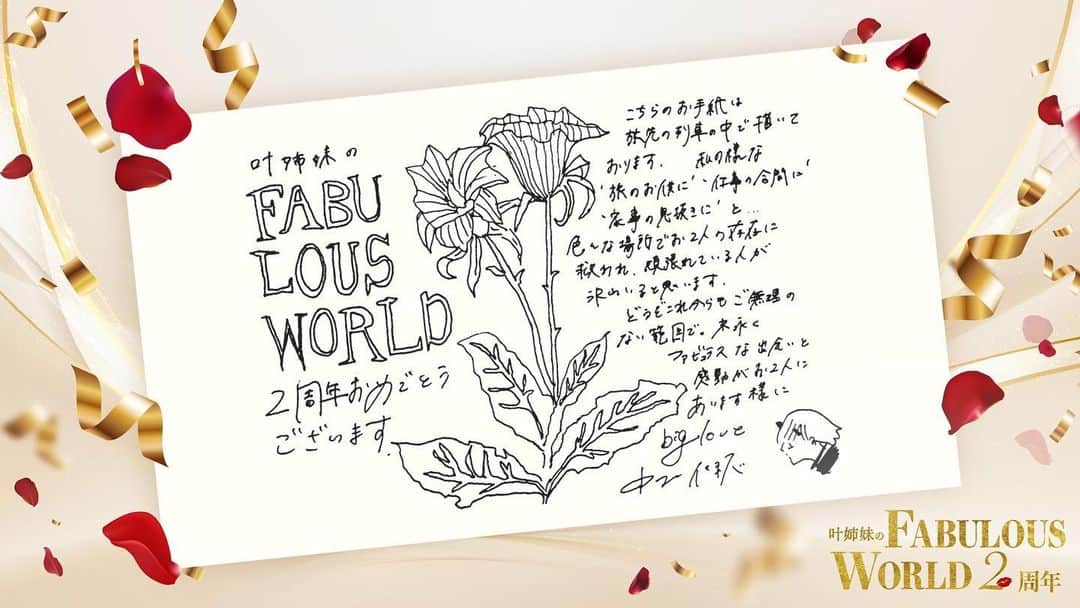 叶姉妹の
FABU
LOUS
WORLD
2周年おめでとう
ございます.
こちらのお手紙は
旅先の列車の中で描いて
おります. 私の様な
'旅のお供に' '仕事の合間に'
'家事の息抜きに'と...
色々な場所でお2人の存在に
救われ、頑張れている人が
沢山いると思います.
どうぞこれからもご無理の
ない範囲で。末永く
ファビュラスな出会いと
感動がお2人に
あります様に
big love
叶姉妹のFABULOUS
WORLD 2周年